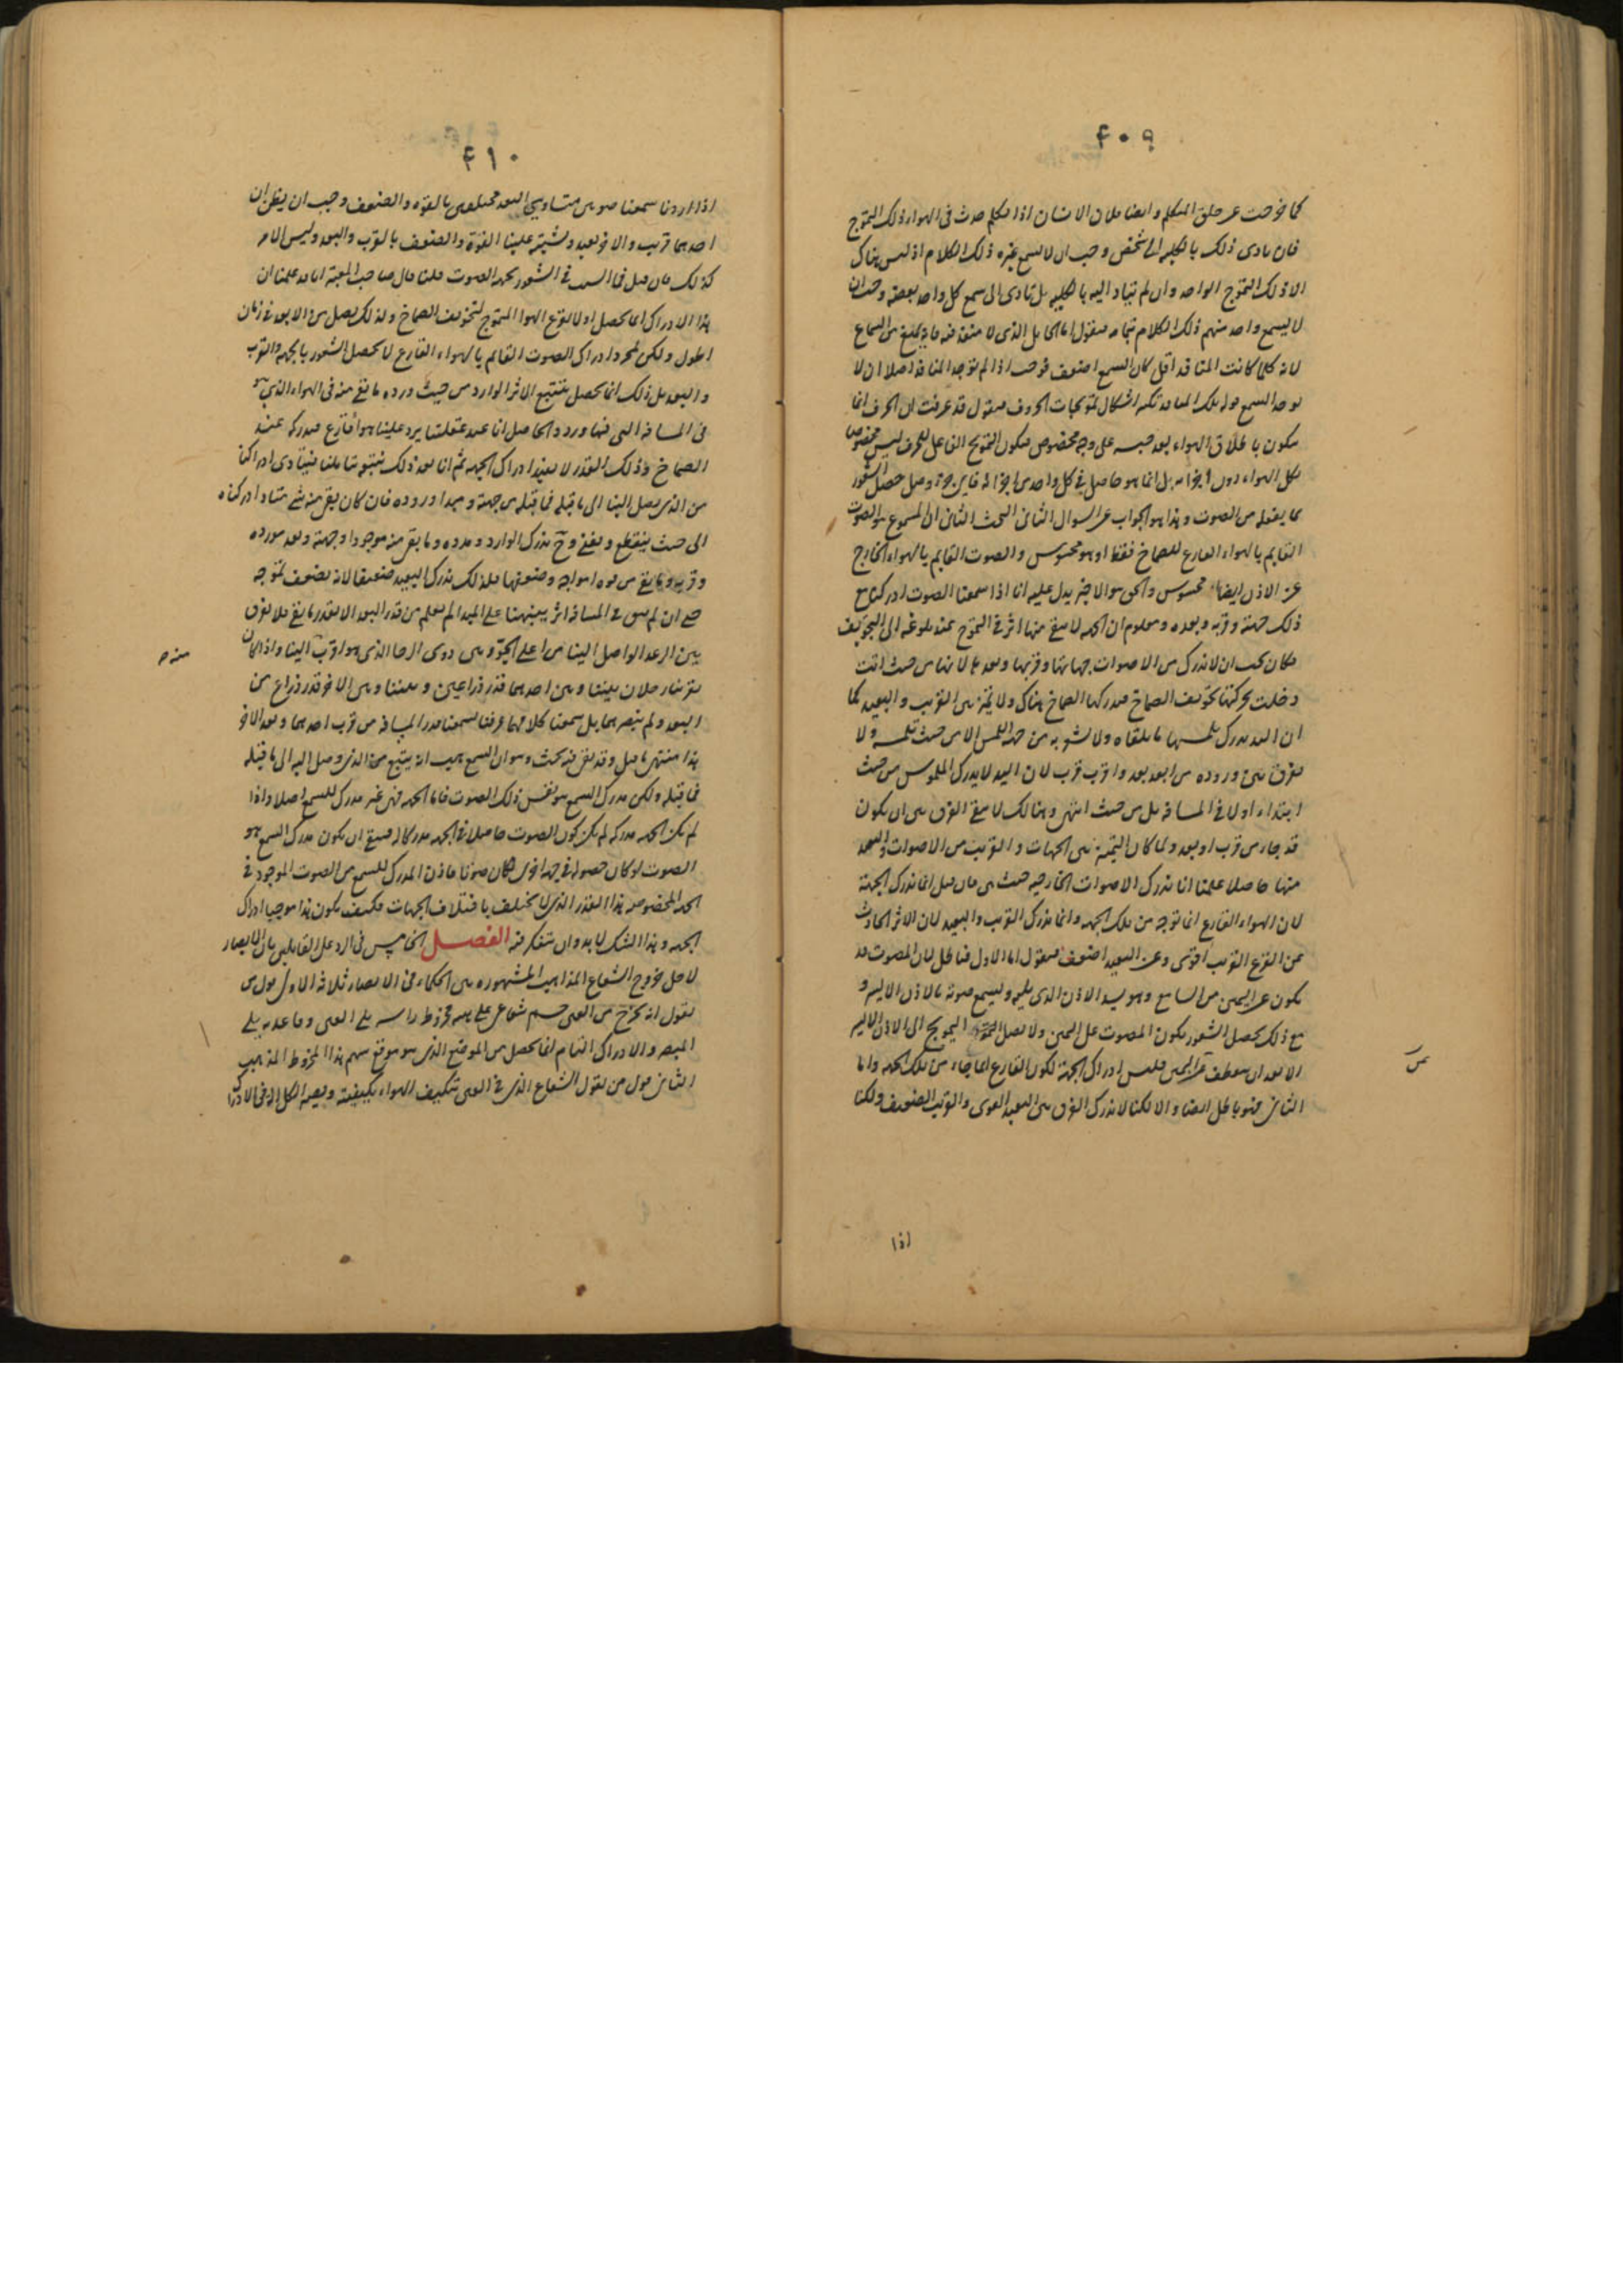 ٤٠٩
كما خرجت عن حلق المتكلم وايضا فلان الانسان اذا تكلم حدث فى الهواء ذلك التموج
فان تادى ذلك بالكلية الى شخص وجب ان لا يسمع غيره ذلك الكلام اذ ليس هناك
الا ذلك التموج الواحد وان لم يتاد اليه بالكلية بل تادى الى سمع كل واحد بعضه وجب ان
لا يسمع واحد منهم ذلك الكلام بتمامه فنقول اما الحايل الذى لا منفذ فيه فانه يمنع من السماع
لانه كلما كانت المنافذ اقل كان السمع اضعف فوجب اذا لم توجد المنافذ اصلا ان لا
يوجد السمع قوله تلك المنافذ اشكال تموجات الحروف فنقول قد عرفت ان الحرف انما
يتكون باطلاق الهواء بعد حبسه على وجه مخصوص فيكون التموج الفاعل للحرف ليس مخصوصا
بكل الهواء دون اجزائه بل انما هو حاصل فى كل واحد من اجزائه فاى جزء وصل حصل الشعور
بما يفعله من الصوت وهذا هو الجواب عن السوال الثانى البحث الثانى ان المسموع هو الصوت
القايم بالهواء القارع للصماخ فقط او هو محسوس والصوت القايم بالهواء الخارج
عن الاذن ايضا محسوس والحق هو الاخير يدل عليه انا اذا سمعنا الصوت ادركنا مع
ذلك جهته وقربه وبعده ومعلوم ان الجهة لا يبقى منها اثر فى التموج عند بلوغه الى التجويف
فكان يجب ان لا ندرك من الاصوات جهاتها وقربها وبعدها لانها من حيث اتت
دخلت بحركتها تجويف الصماخ فيدركها الصماخ هناك ولا يميز بين القريب والبعيد كما
ان اليد تدرك بلمسها ما يلقاه ولا تشعر به من جهة اللمس الا من حيث تلمسه ولا
تفرق بين وروده من ابعد بعد واقرب قرب لان اليد لا تدرك الملموس من حيث
ابتداء اولا فى المسافة بل من حيث انتهى وهنالك لا يبقى الفرق بين ان يكون
قد جاء من قرب او بعد ولما كان التميز بين الجهات والقريب من الاصوات والبعيد
منها حاصلا علمنا انا ندرك الاصوات الخارجة حيث هى فان قيل انما ندرك الجهة
لان الهواء القارع انما توجه من تلك الجهة وانما ندرك القريب والبعيد لان الاثر الحادث
عن القرع القريب اقوى وعن البعيد اضعف فنقول اما الاول فباطل لان المصوت قد
يكون عن اليمين من السامع وهو يسد الاذن الذى يليه ويسمع صوته بالاذن الايسر و
مع ذلك يحصل الشعور بكون المصوت على اليمين ولا يصل التموج الى الاذن الايسر
الا بعد ان ينعطف عن اليمين فليس ادراك الجهة لكون القارع انما جاء من تلك الجهة واما
الثانى فهو باطل ايضا والا لكنا لا ندرك الفرق بين البعيد القوى والقريب الضعيف ولكنا
اذا
٤١٠
اذا اردنا سمعنا صوتين متساويى البعد مختلفين بالقوة والضعف وجب ان يظن ان
احدهما قريب والاخر بعيد وتشتبه علينا القوة والضعف بالقرب والبعد وليس الامر
كذلك فان قيل فما السبب فى الشعور بجهة الصوت قلنا قال صاحب المعتبر انا قد علمنا ان
هذا الادراك انما يحصل اولا لقرع الهواء المتموج لتجويف الصماخ ولذلك يصل من الابعد فى زمان
اطول ولكن بمجرد ادراك الصوت القايم بالهواء القارع لا يحصل الشعور بالجهة والقرب
والبعد بل ذلك انما يحصل بتتبع الاثر الوارد من حيث ورد وما بقى منه فى الهواء الذى هو
فى المسافة التى فيها ورد والحاصل انا عند غفلتنا يرد علينا هواء قارع فيدركه عند
الصماخ وذلك القدر لا يفيد ادراك الجهة ثم انا بعد ذلك نتتبعه بتاملنا فيتادى ادراكنا
من الذى يصل الينا الى ما قبله فما قبله من جهته ومبدا وروده فان كان بقى منه شئ متاد ادركناه
الى حيث ينقطع ويفنى وح ندرك الوارد ومدده وما بقى منه موجودا وجهته وبعد مورده
وقربه وما بقى من قوة امواجه وضعفها فلذلك ندرك البعيد ضعيفا لانه يضعف تموجه
حتى ان لم يبق فى المسافة اثر ينبهنا على المبدا لم نعلم من قدر البعد الا بقدر ما بقى فلا نفرق
بين الرعد الواصل الينا من اعلى الجو وبين دوى الرحا الذى هو اقرب الينا واذا كان
بيننا وبين احدهما قدر ذراعين وبيننا وبين الاخر قدر ذراع من
البعد ولم نبصرهما بل سمعنا كلامهما عرفنا بسمعنا قدر المسافة من قرب احدهما وبعد الاخر
هذا منتهى ما قيل وقد بقى فيه بحث وهو ان السمع هب انه يتتبع من الذى وصل اليه الى ما قبله
فما قبله ولكن مدرك السمع هو نفس ذلك الصوت فاما الجهة فهى غير مدركة للسمع اصلا واذا
لم تكن الجهة مدركة لم يكن كون الصوت حاصلا فى الجهة مدركا له فبقى ان يكون مدرك السمع هو
الصوت لو كان حصوله فى جهة اخرى لكان صوتا ما فاذن المدرك للسمع من الصوت الموجود فى
الجهة المخصوصة هذا القدر الذى لا يختلف باختلاف الجهات فكيف يكون هذا موجبا ادراك
الجهة وهذا الشك لا بد وان نتفكر فيه الفصل الخامس فى الرد على القايلين بان الابصار
لاجل خروج الشعاع المذاهب المشهورة بين الحكماء فى الابصار ثلاثة الاول قول من
يقول انه يخرج من العين جسم شعاعى على هيئة مخروط راسه يلى العين وقاعدته يلى
المبصر والادراك التام انما يحصل من الموضع الذى هو موقع سهم هذا المخروط المذهب
الثانى قول من يقول الشعاع الذى فى العين تتكيف الهواء بكيفيته ويصير الكل آلة فى الادراك